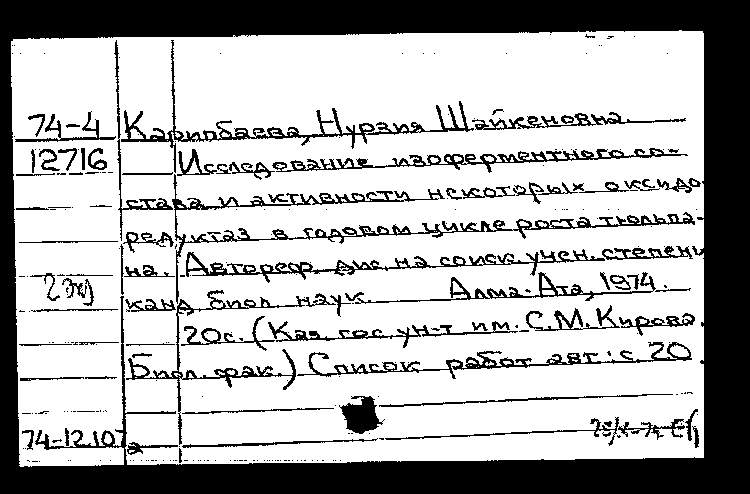 74-4 Карипбаева, Нурзия Шайкеновна.
12716 Исследование изоферментного со-
става и активности некоторых оксидо-
редуктаз в годовом цикле роста тюльпа-
на. Автореф. дис. на соиск. учен. степени
2 экз канд. биол. наук. Алма-Ата, 1974.
20с. (Каз. гос. ун-т им. С.М. Кирова.
Биол. фак.) Список работ авт.: с. 20.
74-12.107а